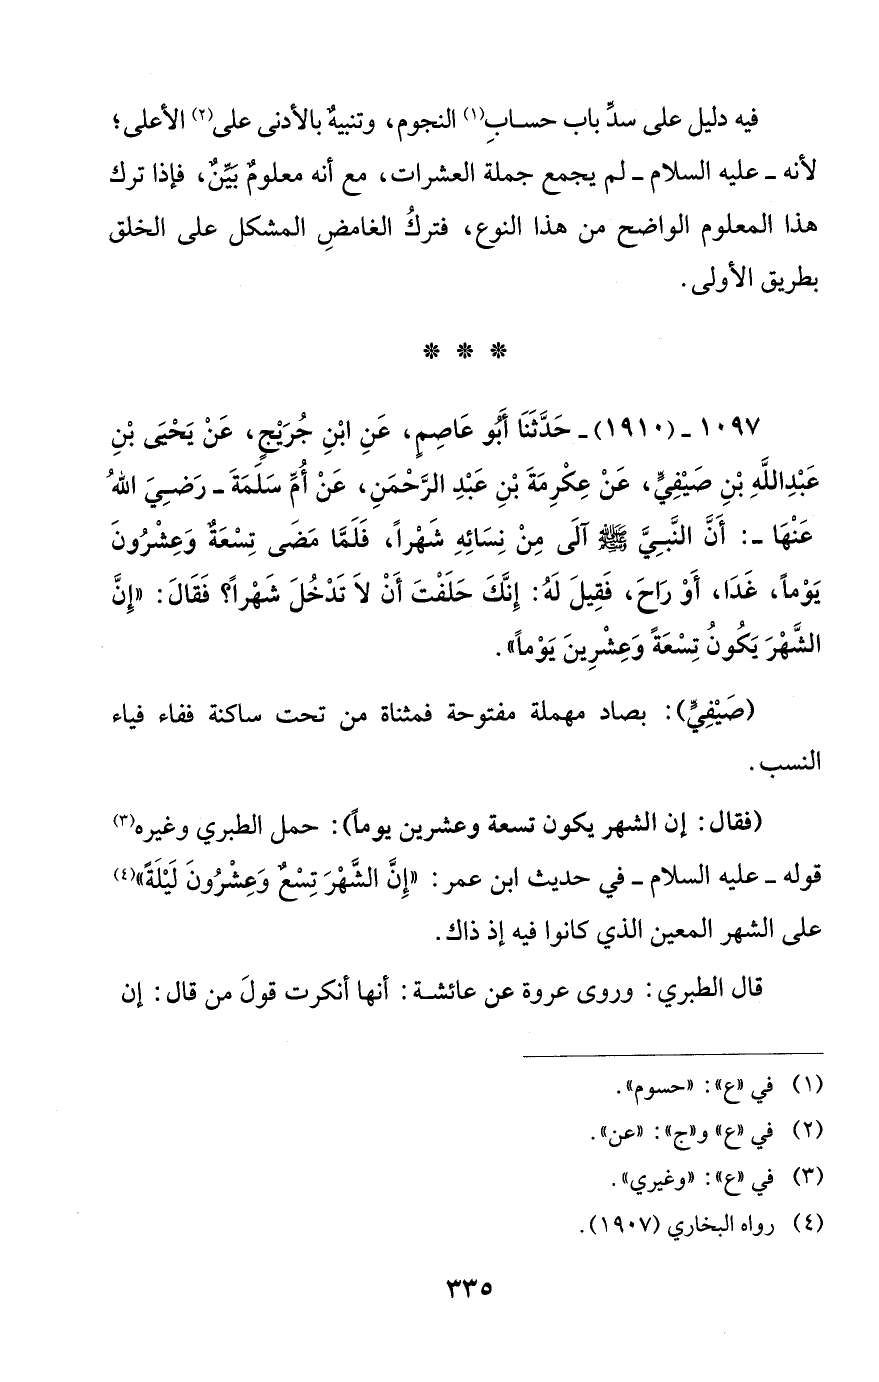 فيه دليل على سدِّ باب حسابِ(١) النجوم، وتنبيهٌ بالأدنى على(٢) الأعلى؛
لأنه ـ عليه السلام ـ لم يجمع جملة العشرات، مع أنه معلومٌ بَيِّنٌ، فإذا ترك
هذا المعلوم الواضح من هذا النوع، فتركُ الغامضِ المشكل على الخلق
بطريق الأولى.
* * *
١٠٩٧ ـ (١٩١٠) ـ حَدَّثَنَا أَبُو عَاصِمٍ، عَنِ ابْنِ جُرَيْجٍ، عَنْ يَحْيَى بْنِ
عَبْدِاللَّهِ بْنِ صَيْفِيٍّ، عَنْ عِكْرِمَةَ بْنِ عَبْدِ الرَّحْمَنِ، عَنْ أُمِّ سَلَمَةَ ـ رَضِيَ اللهُ
عَنْهَا ـ: أَنَّ النَّبِيَّ ﷺ آلَى مِنْ نِسَائِهِ شَهْراً، فَلَمَّا مَضَى تِسْعَةٌ وَعِشْرُونَ
يَوْماً، غَدَا، أَوْ رَاحَ، فَقِيلَ لَهُ: إِنَّكَ حَلَفْتَ أَنْ لاَ تَدْخُلَ شَهْراً؟ فَقَالَ: «إِنَّ
الشَّهْرَ يَكُونُ تِسْعَةً وَعِشْرِينَ يَوْماً».
(صَيْفِيٍّ): بصاد مهملة مفتوحة فمثناة من تحت ساكنة ففاء فياء
النسب.
(فقال: إن الشهر يكون تسعة وعشرين يوماً): حمل الطبري وغيره(٣)
قوله ـ عليه السلام ـ في حديث ابن عمر: «إِنَّ الشَّهْرَ تِسْعٌ وَعِشْرُونَ لَيْلَةً»(٤)
على الشهر المعين الذي كانوا فيه إذ ذاك.
قال الطبري: وروى عروة عن عائشة: أنها أنكرت قولَ من قال: إن
(١) في «ع»: «حسوم».
(٢) في «ع» و«ج»: «عن».
(٣) في «ع»: «وغيري».
(٤) رواه البخاري (١٩٠٧).
٣٣٥